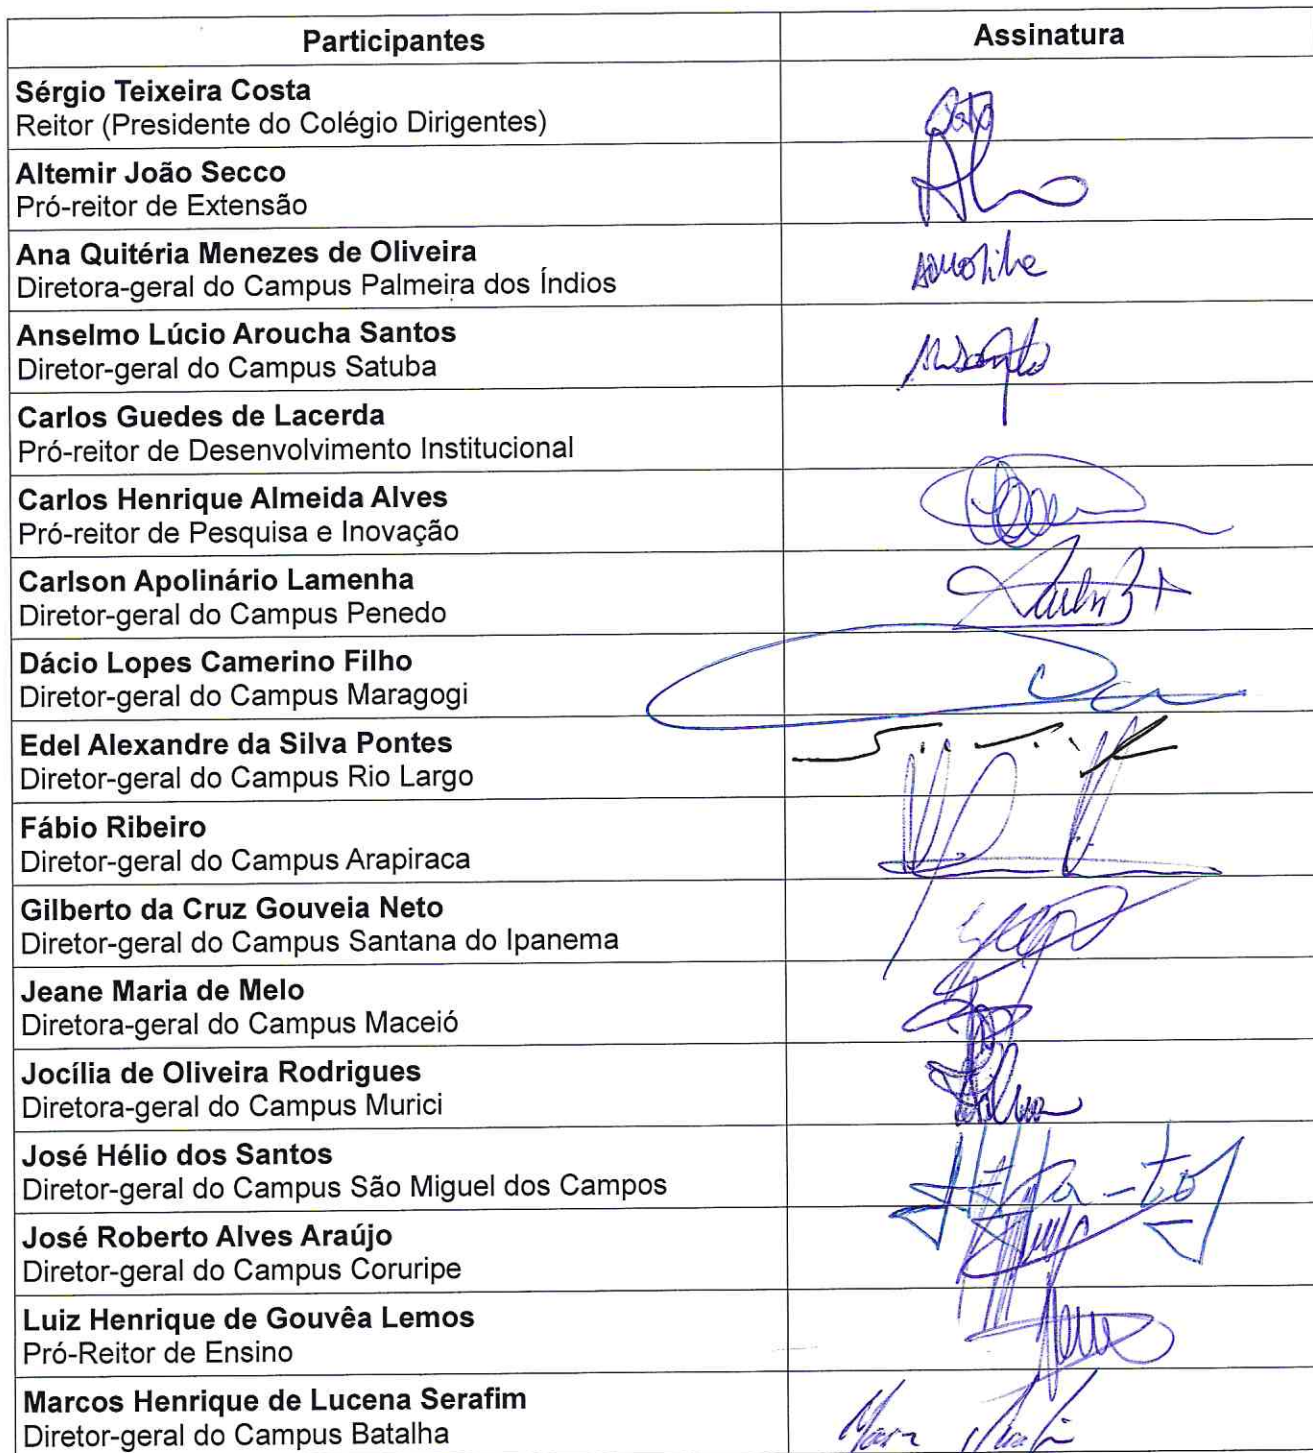 Participantes Assinatura
Sérgio Teixeira Costa
Reitor (Presidente do Colégio Dirigentes)
Altemir João Secco
Pró-reitor de Extensão
Ana Quitéria Menezes de Oliveira
Diretora-geral do Campus Palmeira dos Índios
Anselmo Lúcio Aroucha Santos
Diretor-geral do Campus Satuba
Carlos Guedes de Lacerda
Pró-reitor de Desenvolvimento Institucional
Carlos Henrique Almeida Alves
Pró-reitor de Pesquisa e Inovação
Carlson Apolinário Lamenha
Diretor-geral do Campus Penedo
Dácio Lopes Camerino Filho
Diretor-geral do Campus Maragogi
Edel Alexandre da Silva Pontes
Diretor-geral do Campus Rio Largo
Fábio Ribeiro
Diretor-geral do Campus Arapiraca
Gilberto da Cruz Gouveia Neto
Diretor-geral do Campus Santana do Ipanema
Jeane Maria de Melo
Diretora-geral do Campus Maceió
Jocília de Oliveira Rodrigues
Diretora-geral do Campus Murici
José Hélio dos Santos
Diretor-geral do Campus São Miguel dos Campos
José Roberto Alves Araújo
Diretor-geral do Campus Coruripe
Luiz Henrique de Gouvêa Lemos
Pró-Reitor de Ensino
Marcos Henrique de Lucena Serafim
Diretor-geral do Campus Batalha